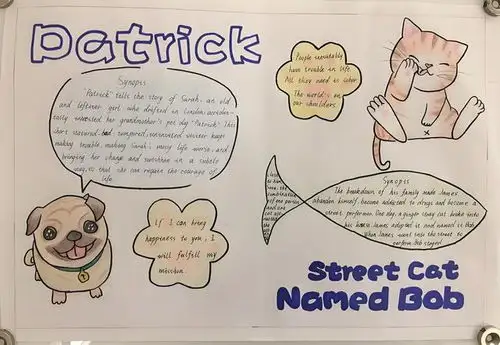 Patrick
Synopsis
"Patrick" tells the story of Sarah, an old
and leftover girl who drifted in London,
inherited her grandmother's pet dog "Patrick". This
short statured, bad tempered, uninvited visitor keeps
making trouble, making Sarah's messy life worse, and
bringing her change and sunshine in a subtle
way, so that she can regain the courage of
life
People inevitably
have trouble in life
All they need is
The world is on
our shoulders
If I can bring
happiness to you, I
will fulfill my
mission.
Synopsis
The breakdown of his family made James
abandon himself, become addicted to drugs and become a
street performer. One day, a ginger stray cat broke into
his James adopted it and named it Bob
When James went into the street to
perform, Bob stayed
Street Cat
Named Bob